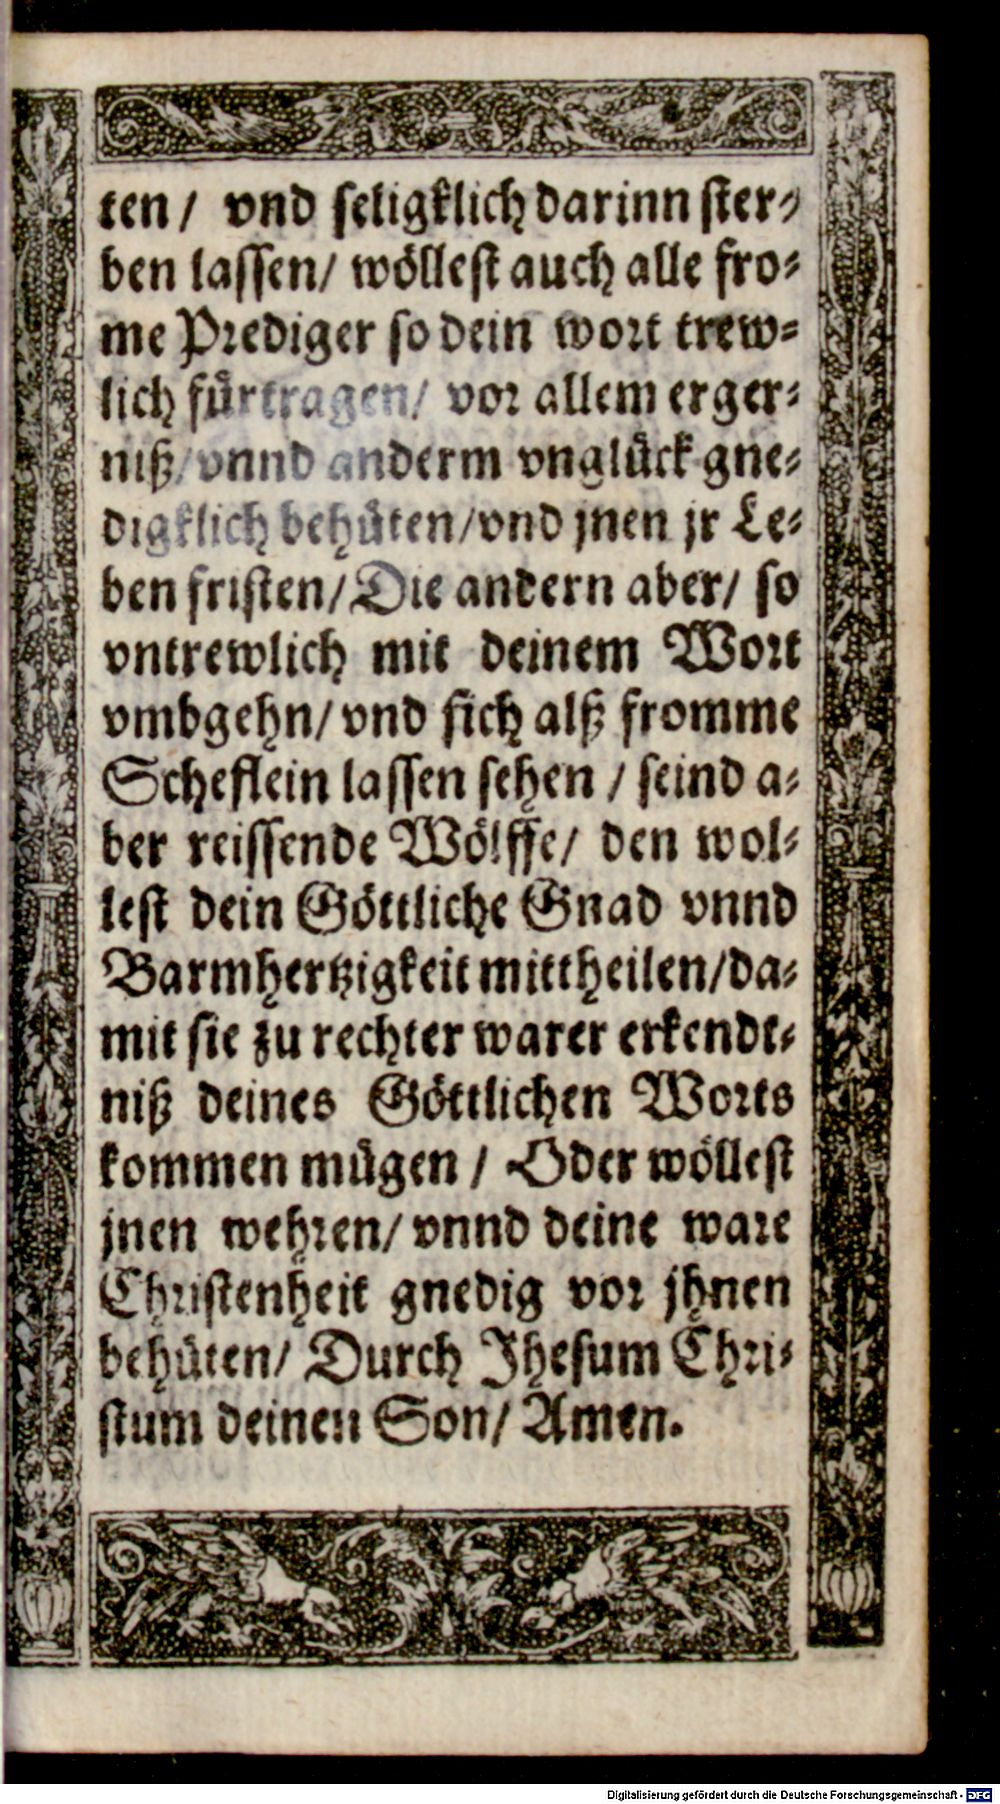 ten / vnd seligklich darinn ster⸗
ben lassen/ wöllest auch alle fro⸗
me Prediger so dein wort trew⸗
lich fürtragen/ vor allem erger⸗
niß/vnnd anderm vnglück gne⸗
digklich behüten/vnd jnen jr Le⸗
ben fristen/Die andern aber/ so
vntrewlich mit deinem Wort
vmbgehn/vnd sich alß fromme
Scheflein lassen sehen / seind a⸗
ber reissende Wölffe/ den wol⸗
lest dein Göttliche Gnad vnnd
Barmhertzigkeit mittheilen/da⸗
mit sie zu rechter warer erkendt⸗
niß deines Göttlichen Worts
kommen mügen / Oder wöllest
jnen wehren/ vnnd deine ware
Christenheit gnedig vor jhnen
behüten/ Durch Jhesum Chri⸗
stum deinen Son/ Amen.
Digitalisierung gefördert durch die Deutsche Forschungsgemeinschaft - DFG